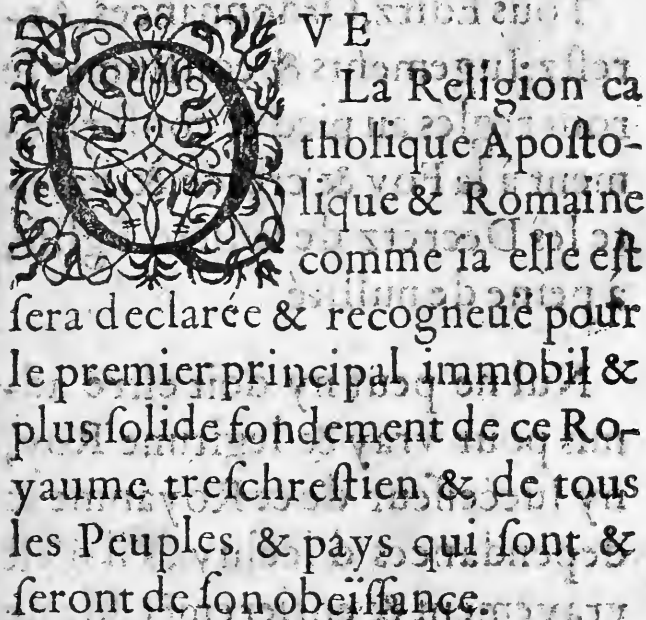 QVE
La Religion ca
tholique Apoſto-
lique & Romaine
comme ia elle eſt
ſera declarée & recogneuë pour
le premier principal immobil &
plus ſolide fondement de ce Ro-
yaume treſchreſtien & de tous
les Peuples & pays qui ſont &
ſeront de ſon obeïſſance.